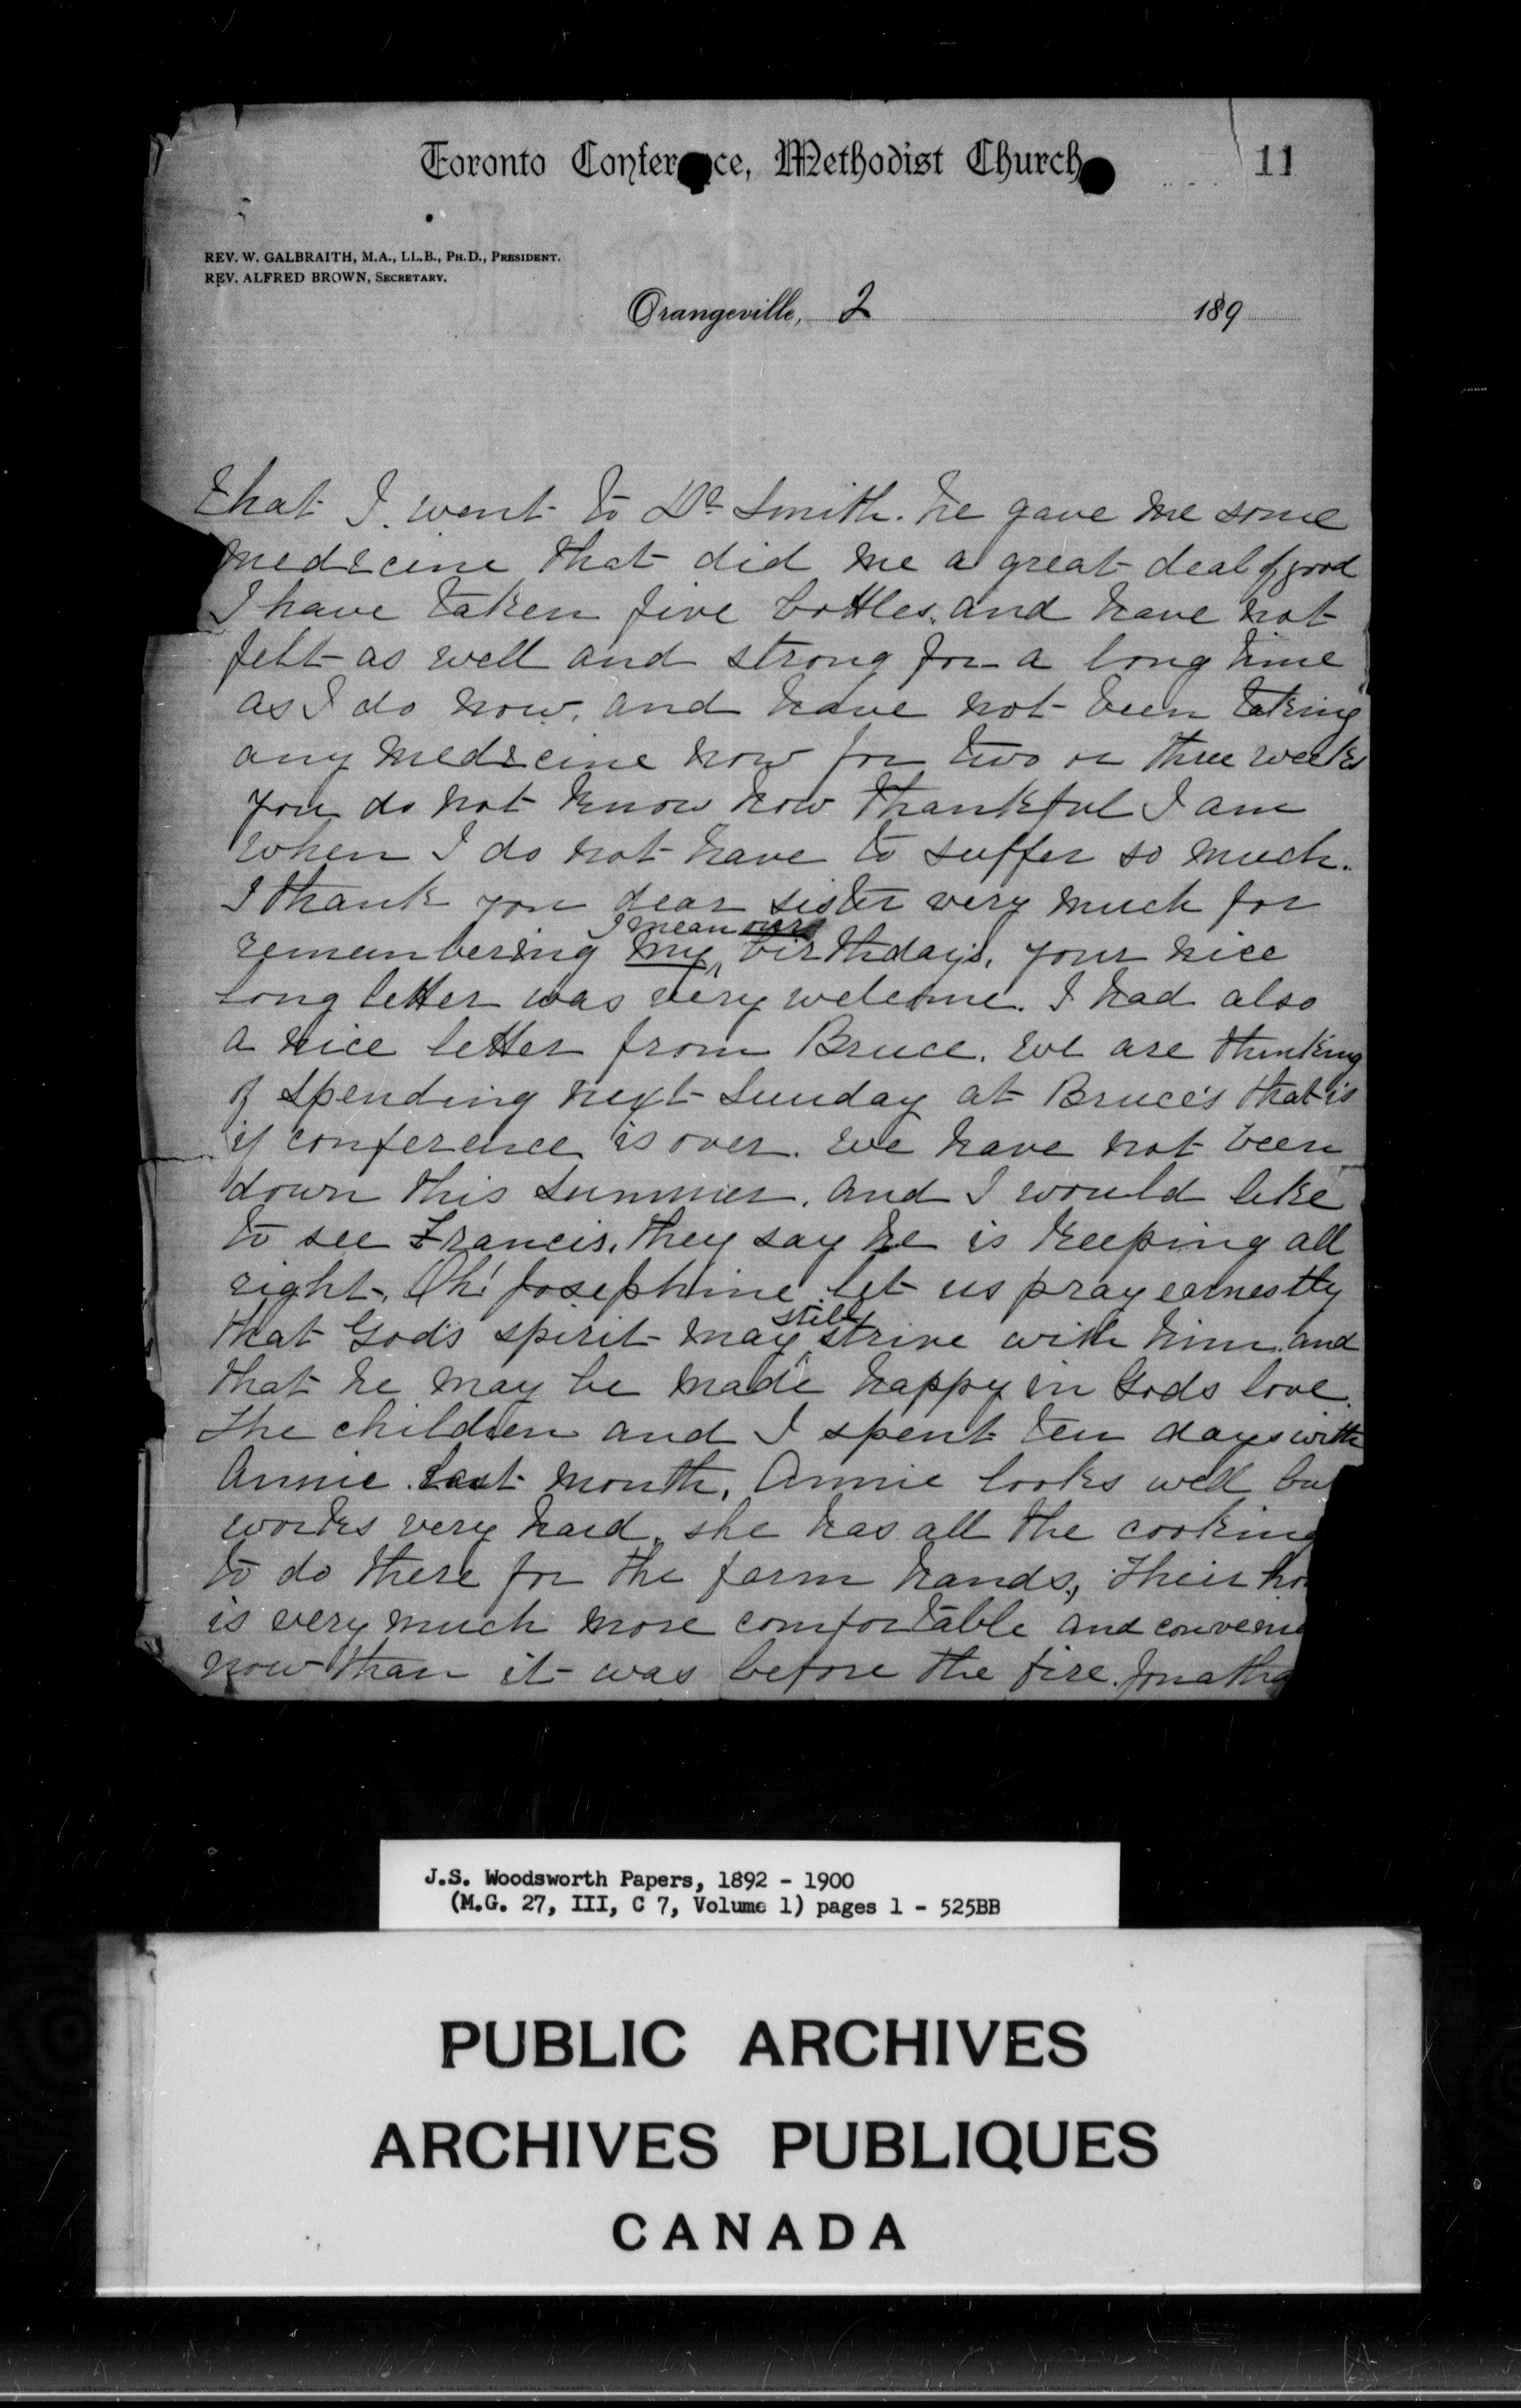 Toronto Conference, Methodist Church
11
REV. W. GALBRAITH, M.A., LL.B., PH.D., PRESIDENT.
REV. ALFRED BROWN, SECRETARY.
Orangeville, 2 189
that I went to Dr Smith. he gave me some
medicine that did me a great deal of good
I have taken five bottles. and have not
felt as well and strong for a long time
as I do now. and have not been taking
any medicine now for two or three weeks
you do not know how thankful I am
when I do not have to suffer so much.
I thank you dear sister very much for
I mean ours
remembering my birthdays. your nice
long letter was very welcome. I had also
a nice letter from Bruce. we are thinking
of spending next Sunday at Bruce's that is
if conference is over. we have not been
down this summer. and I would like
to see Francis. they say he is keeping all
right. Oh! Josephine let us pray earnestly
still
that God's spirit may strive with him. and
that he may be made happy in Gods love.
The children and I spent ten days with
Annie last month. Annie looks well bu
works very hard. she has all the cooking
to do there for the farm hands, their ho
is very much more comfortable and convenie
now than it was before the fire. Jonatha
J.S. Woodsworth Papers, 1892 - 1900
(M.G. 27, III, C 7, Volume 1) pages 1 - 525BB
PUBLIC ARCHIVES
ARCHIVES PUBLIQUES
CANADA